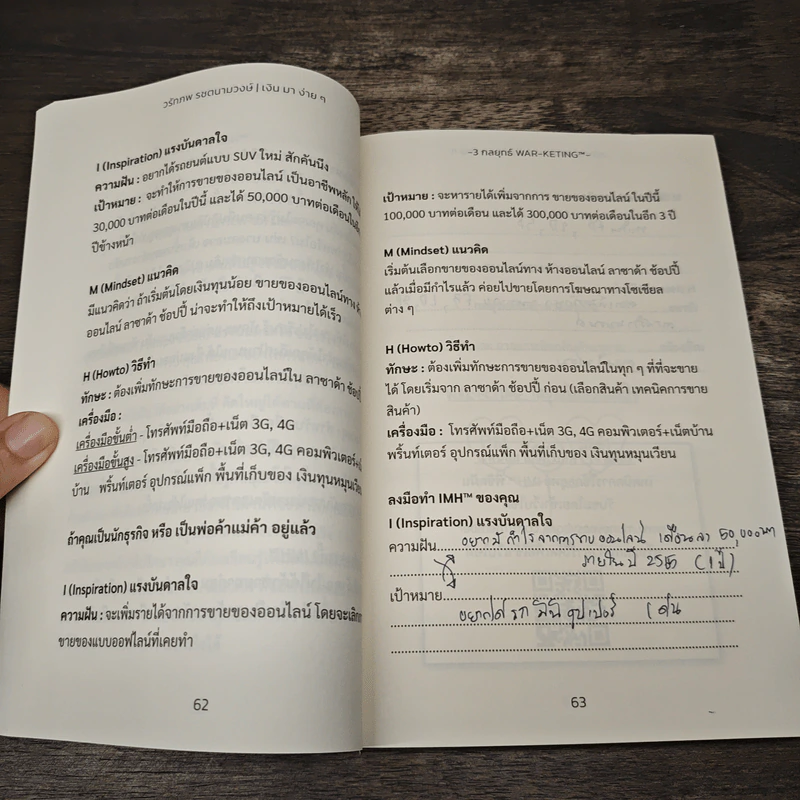 วรัทภพ รชตนามวงษ์ | เงิน มา ง่าย ๆ
I (Inspiration) แรงบันดาลใจ
ความฝัน : อยากได้รถยนต์แบบ SUV ใหม่ สักคันนึง
เป้าหมาย : จะทำให้การขายของออนไลน์ เป็นอาชีพหลัก
30,000 บาทต่อเดือนในปีนี้ และได้ 50,000 บาทต่อเดือนในอีก
ปีข้างหน้า
M (Mindset) แนวคิด
มีแนวคิดว่า ถ้าเริ่มต้นโดยเงินทุนน้อย ขายของออนไลน์ทาง
ออนไลน์ ลาซาด้า ช้อปปี้ น่าจะทำให้ถึงเป้าหมายได้เร็ว
H (Howto) วิธีทำ
ทักษะ : ต้องเพิ่มทักษะการขายของออนไลน์ใน ลาซาด้า ช้อปปี้
เครื่องมือ :
เครื่องมือขั้นต่ำ - โทรศัพท์มือถือ+เน็ต 3G, 4G
เครื่องมือขั้นสูง - โทรศัพท์มือถือ+เน็ต 3G, 4G คอมพิวเตอร์+
บ้าน พริ้นท์เตอร์ อุปกรณ์แพ็ก พื้นที่เก็บของ เงินทุนหมุนเวียน
ถ้าคุณเป็นนักธุรกิจ หรือ เป็นพ่อค้าแม่ค้า อยู่แล้ว
I (Inspiration) แรงบันดาลใจ
ความฝัน : จะเพิ่มรายได้จากการขายของออนไลน์ โดยจะเลิก
ขายของแบบออฟไลน์ที่เคยทำ
62
-3 กลยุทธ์ WAR-KETING™-
เป้าหมาย : จะหารายได้เพิ่มจากการ ขายของออนไลน์ ในปีนี้
100,000 บาทต่อเดือน และได้ 300,000 บาทต่อเดือนในอีก 3 ปี
M (Mindset) แนวคิด
เริ่มต้นเลือกขายของออนไลน์ทาง ห้างออนไลน์ ลาซาด้า ช้อปปี้
แล้วเมื่อมีกำไรแล้ว ค่อยไปขายโดยการโฆษณาทางโซเชียล
ต่าง ๆ
H (Howto) วิธีทำ
ทักษะ : ต้องเพิ่มทักษะการขายของออนไลน์ในทุก ๆ ที่ที่จะขาย
ได้ โดยเริ่มจาก ลาซาด้า ช้อปปี้ ก่อน (เลือกสินค้า เทคนิคการขาย
สินค้า)
เครื่องมือ : โทรศัพท์มือถือ+เน็ต 3G, 4G คอมพิวเตอร์+เน็ตบ้าน
พริ้นท์เตอร์ อุปกรณ์แพ็ก พื้นที่เก็บของ เงินทุนหมุนเวียน
ลงมือทำ IMH™ ของคุณ
I (Inspiration) แรงบันดาลใจ
ความฝัน อยากมีกำไรจากการขายออนไลน์ เดือนละ 50,000บาท
ภายในปี (1ปี)
เป้าหมาย
อยากได้รถ มินิ คูปเปอร์ 1 คัน
63